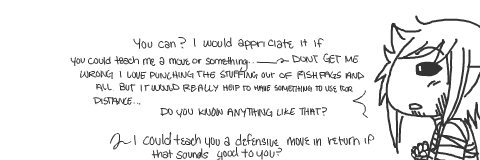 You can? I would appriciate it if
you could teach me a move or something... DONT GET ME
WRONG I LOVE PUNCHING THE STUFFING OUT OF FISHFAGS AND
ALL BUT IT WOULD REALLY HELP TO HAVE SOMETHING TO USE FOR
DISTANCE...
DO YOU KNOW ANYTHING LIKE THAT?
I could teach you a defensive move in return if
that sounds good to you?